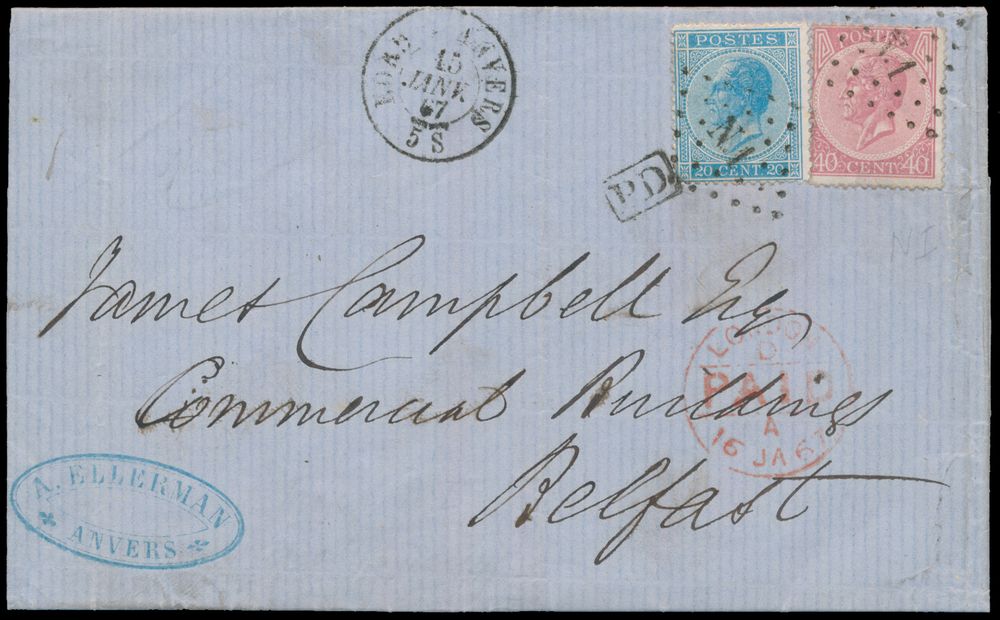 ANVERS
15
JANV
67
5 S
POSTES
20 CENT 20
N1
POSTES
40 CENT 40
N1
P.D
NI
James Campbell Esq
Commercial Buildings
Belfast
LONDON
D
PAID
A
16 JA 67
A. ELLERMAN
ANVERS